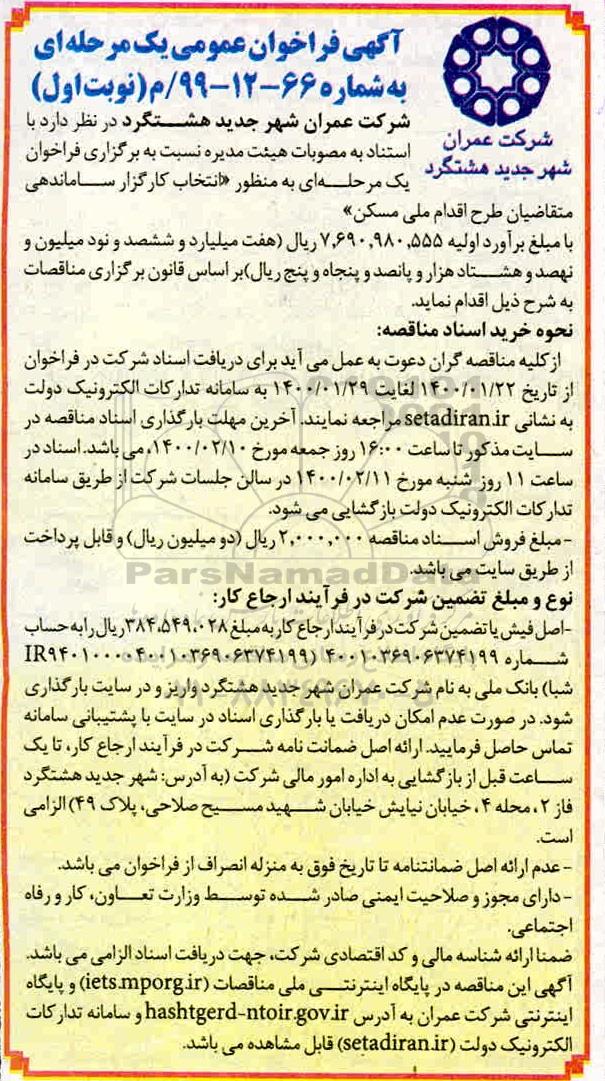 آگهی فراخوان عمومی یک مرحله‌ای
به شماره ۶۶-۱۲-۹۹/م (نوبت اول)
شرکت عمران
شهر جدید هشتگرد
شرکت عمران شهر جدید هشتگرد در نظر دارد با
استناد به مصوبات هیئت مدیره نسبت به برگزاری فراخوان
یک مرحله‌ای به منظور «انتخاب کارگزار ساماندهی
متقاضیان طرح اقدام ملی مسکن»
با مبلغ برآورد اولیه ۷,۶۹۰,۹۸۰,۵۵۵ ریال (هفت میلیارد و ششصد و نود میلیون و
نهصد و هشتاد هزار و پانصد و پنجاه و پنج ریال) بر اساس قانون برگزاری مناقصات
به شرح ذیل اقدام نماید.
نحوه خرید اسناد مناقصه:
از کلیه مناقصه گران دعوت به عمل می آید برای دریافت اسناد شرکت در فراخوان
از تاریخ ۱۴۰۰/۰۱/۲۲ لغایت ۱۴۰۰/۰۱/۲۹ به سامانه تدارکات الکترونیک دولت
به نشانی setadiran.ir مراجعه نمایند. آخرین مهلت بارگذاری اسناد مناقصه در
سایت مذکور تا ساعت ۱۶:۰۰ روز جمعه مورخ ۱۴۰۰/۰۲/۱۰، می باشد. اسناد در
ساعت ۱۱ روز شنبه مورخ ۱۴۰۰/۰۲/۱۱ در سالن جلسات شرکت از طریق سامانه
تدارکات الکترونیک دولت بازگشایی می شود.
- مبلغ فروش اسناد مناقصه ۲,۰۰۰,۰۰۰ ریال (دو میلیون ریال) و قابل پرداخت
از طریق سایت می باشد.
ParsNamadData
نوع و مبلغ تضمین شرکت در فرآیند ارجاع کار:
- اصل فیش یا تضمین شرکت در فرآیند ارجاع کار به مبلغ ۳۸۴,۵۴۹,۰۲۸ ریال را به حساب
شماره ۴۰۰۱۰۳۶۹۰۶۳۷۴۱۹۹ (IR۹۴۰۱۰۰۰۰۴۰۰۱۰۳۶۹۰۶۳۷۴۱۹۹
شبا) بانک ملی به نام شرکت عمران شهر جدید هشتگرد واریز و در سایت بارگذاری
شود. در صورت عدم امکان دریافت یا بارگذاری اسناد در سایت با پشتیبانی سامانه
تماس حاصل فرمایید. ارائه اصل ضمانت نامه شرکت در فرآیند ارجاع کار، تا یک
ساعت قبل از بازگشایی به اداره امور مالی شرکت (به آدرس: شهر جدید هشتگرد
فاز ۲، محله ۴، خیابان نیایش خیابان شهید مسیح صلاحی، پلاک ۴۹) الزامی
است.
- عدم ارائه اصل ضمانتنامه تا تاریخ فوق به منزله انصراف از فراخوان می باشد.
- دارای مجوز و صلاحیت ایمنی صادر شده توسط وزارت تعاون، کار و رفاه
اجتماعی.
ضمنا ارائه شناسه مالی و کد اقتصادی شرکت، جهت دریافت اسناد الزامی می باشد.
آگهی این مناقصه در پایگاه اینترنتی ملی مناقصات (iets.mporg.ir) و پایگاه
اینترنتی شرکت عمران به آدرس hashtgerd-ntoir.gov.ir و سامانه تدارکات
الکترونیک دولت (setadiran.ir) قابل مشاهده می باشد.